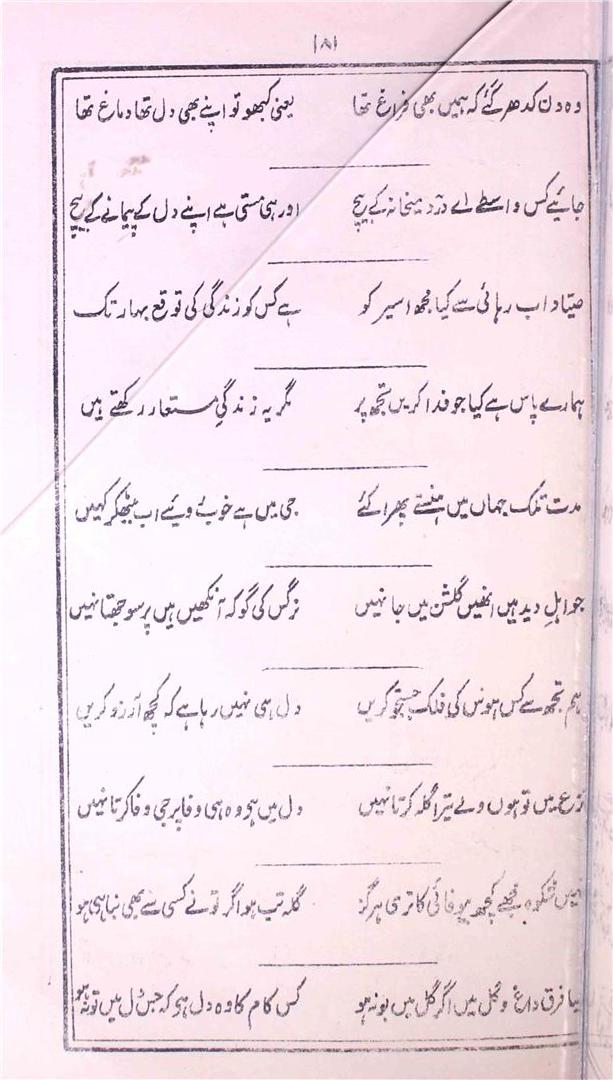 ۱۸۱
وہ دن کدھر گئے کہ ہمیں بھی فراغ تھا یعنی کبھو تو اپنے بھی دل تھا دماغ تھا
جائیے کس واسطے اے درد میخانہ کے بیچ اور ہی مستی ہے اپنے دل کے پیمانے کے بیچ
صیّاد اب رہائی سے کیا مجھ اسیر کو ہے کس کو زندگی کی توقع بہار تک
ہمارے پاس ہے کیا جو فدا کریں تجھ پر مگر یہ زندگیِ مستعار رکھتے ہیں
مدت تلک جہاں میں ہنستے پھرا کئے جی میں ہے خوب روئیے اب بیٹھکر کہیں
جو اہلِ دید ہیں انھیں گلشن میں جا نہیں نرگس کی گو کہ آنکھیں ہیں پر سوجھتا نہیں
ہم تجھ سے کس ہوس کی فلک جستجو کریں دل ہی نہیں رہا ہے کہ کچھ آرزو کریں
نزع میں تو ہوں ولے تیرا گلہ کرتا نہیں دل میں ہے وہ ہی وفا پر جی وفا کرتا نہیں
نہیں شکوہ مجھے کچھ بیوفائی کا تری ہرگز گلہ تب ہو اگر تونے کسی سے بھی نباہی ہو
فرق داغ و گل میں اگر گل میں بو نہ ہو کس کام کا وہ دل ہے کہ جس دل میں تو نہ ہو